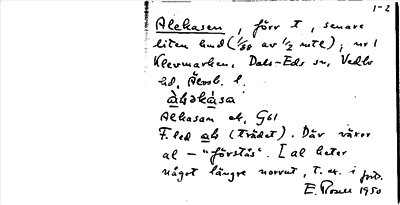 1-2
Alekasen, förr t, senare
liten hmd (1/88 av 1/2 mtl); nr 1
Klevmarken, Dals-Eds sn, Vedbo
hd, Älvsb. l.
àləkása
Alkasan ek. G61
F. led als (trädet). Där växer
al – "förstås". [al heter
något längre norrut, t. ex. i
E. Rosell 1950